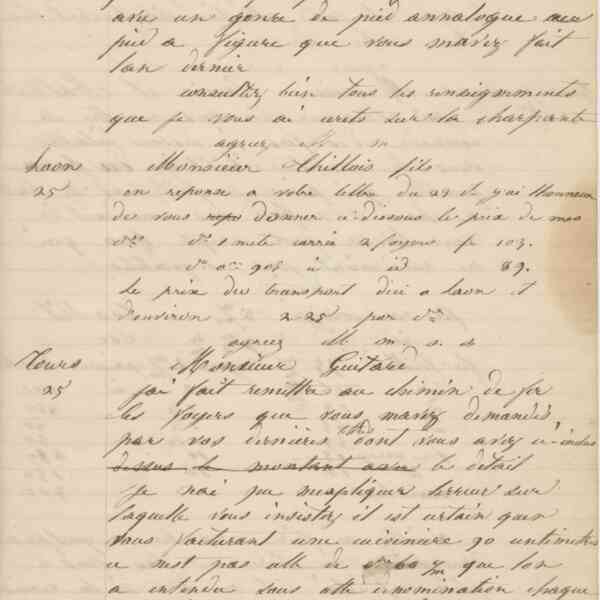 avec un genre de pied annalogue au
pied a figure que vous mavez fait
lan dernier
consultez bien tous les renseignments
que je vous ai ecrits sur la charpente
agreez M m
Laon Monsieur Thillois fils
25 en reponse a votre lettre du 23 Ct jai lhonneur
des vous repo donner ci dessous le prix de mes
1 mete carrée 2 foyers f 103.
id 89.
Le prix du transport dici a Laon et
denviron 2 25 par
agreez M m. s. d
Tours Monsieur Guitard
25 jai fait remettre au chemin de fer
les foyers que vous mavez demandés
par vos dernières lttres dont vous avez ci-inclus
dessus le montant avec le détail
je nai pu mexpliquer lerreur sur
laquelle vous insistez il est certain quen
vous facturant une cuisinière 90 centimetres
ce nest pas celle de 60 que lon
a entendu sous cette dénomination chaque